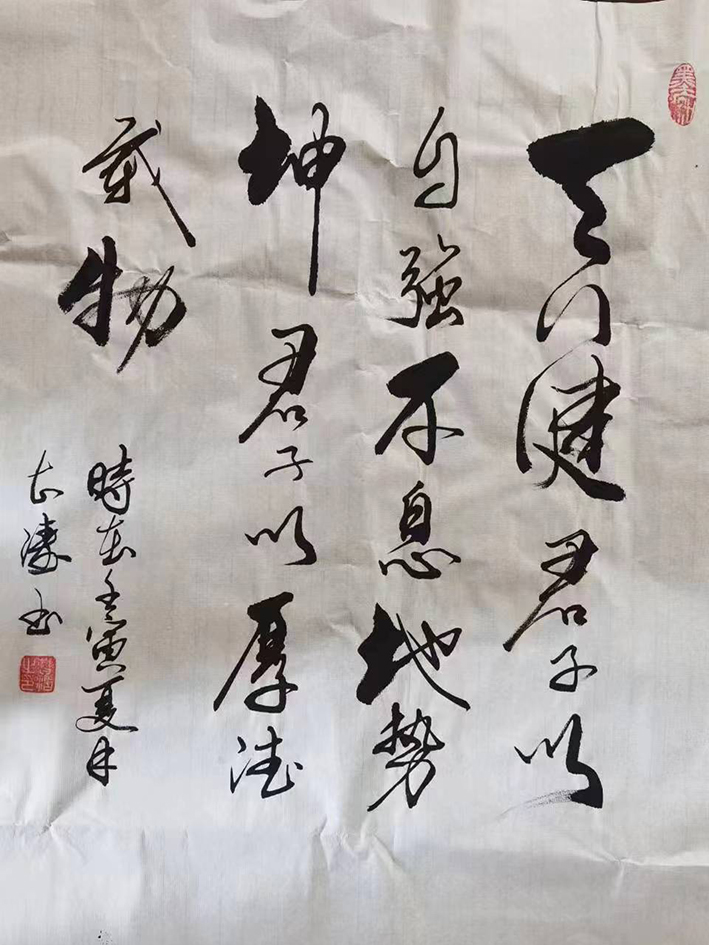 天行健君子以
自強不息地势
坤君子以厚德
载物
時在壬寅夏月